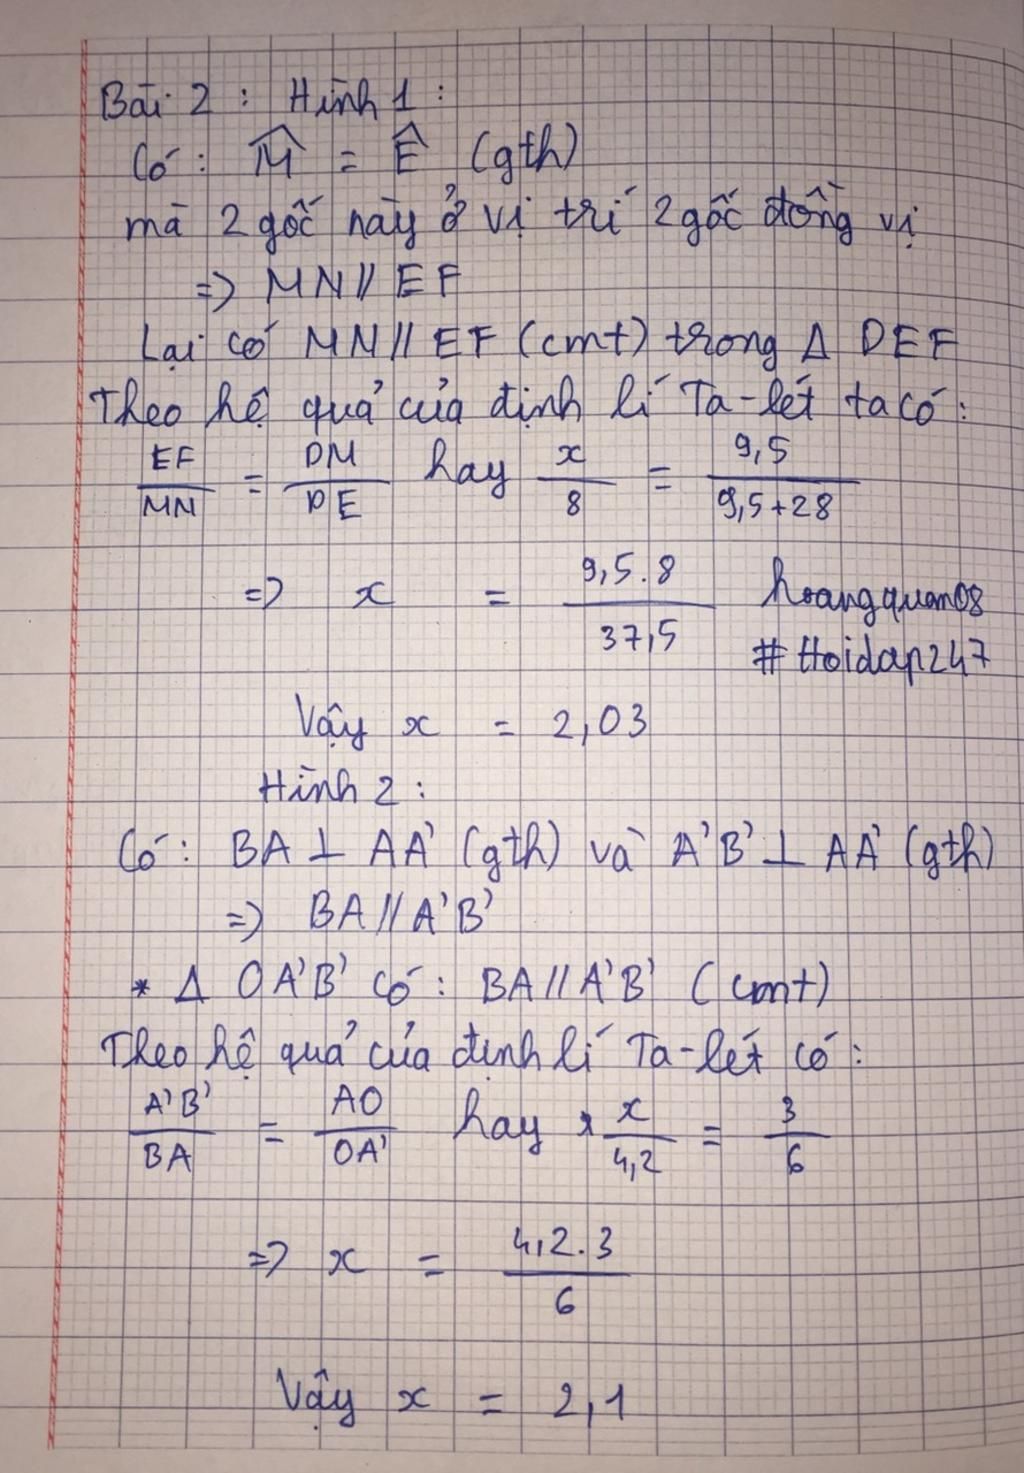 Bài 2 : Hình 1 :
Có : M̂ = Ê (gth)
mà 2 gốc này ở vị trí 2 gốc đồng vị
=> MN // EF
Lại có MN // EF (cmt) trong Δ DEF
Theo hệ quả của định lí Ta-lét ta có :
EF/MN = DM/DE hay x/8 = 9,5/9,5+28
=> x = 9,5.8/37,5 hoangquan08
#Hoidap247
Vậy x = 2,03
Hình 2 :
Có : BA ⊥ AA' (gth) và A'B' ⊥ AA' (gth)
=> BA // A'B'
* Δ OA'B' có : BA // A'B' (cmt)
Theo hệ quả của định lí Ta-lét có :
A'B'/BA = AO/OA' hay x/4,2 = 3/6
=> x = 4,2.3/6
Vậy x = 2,1